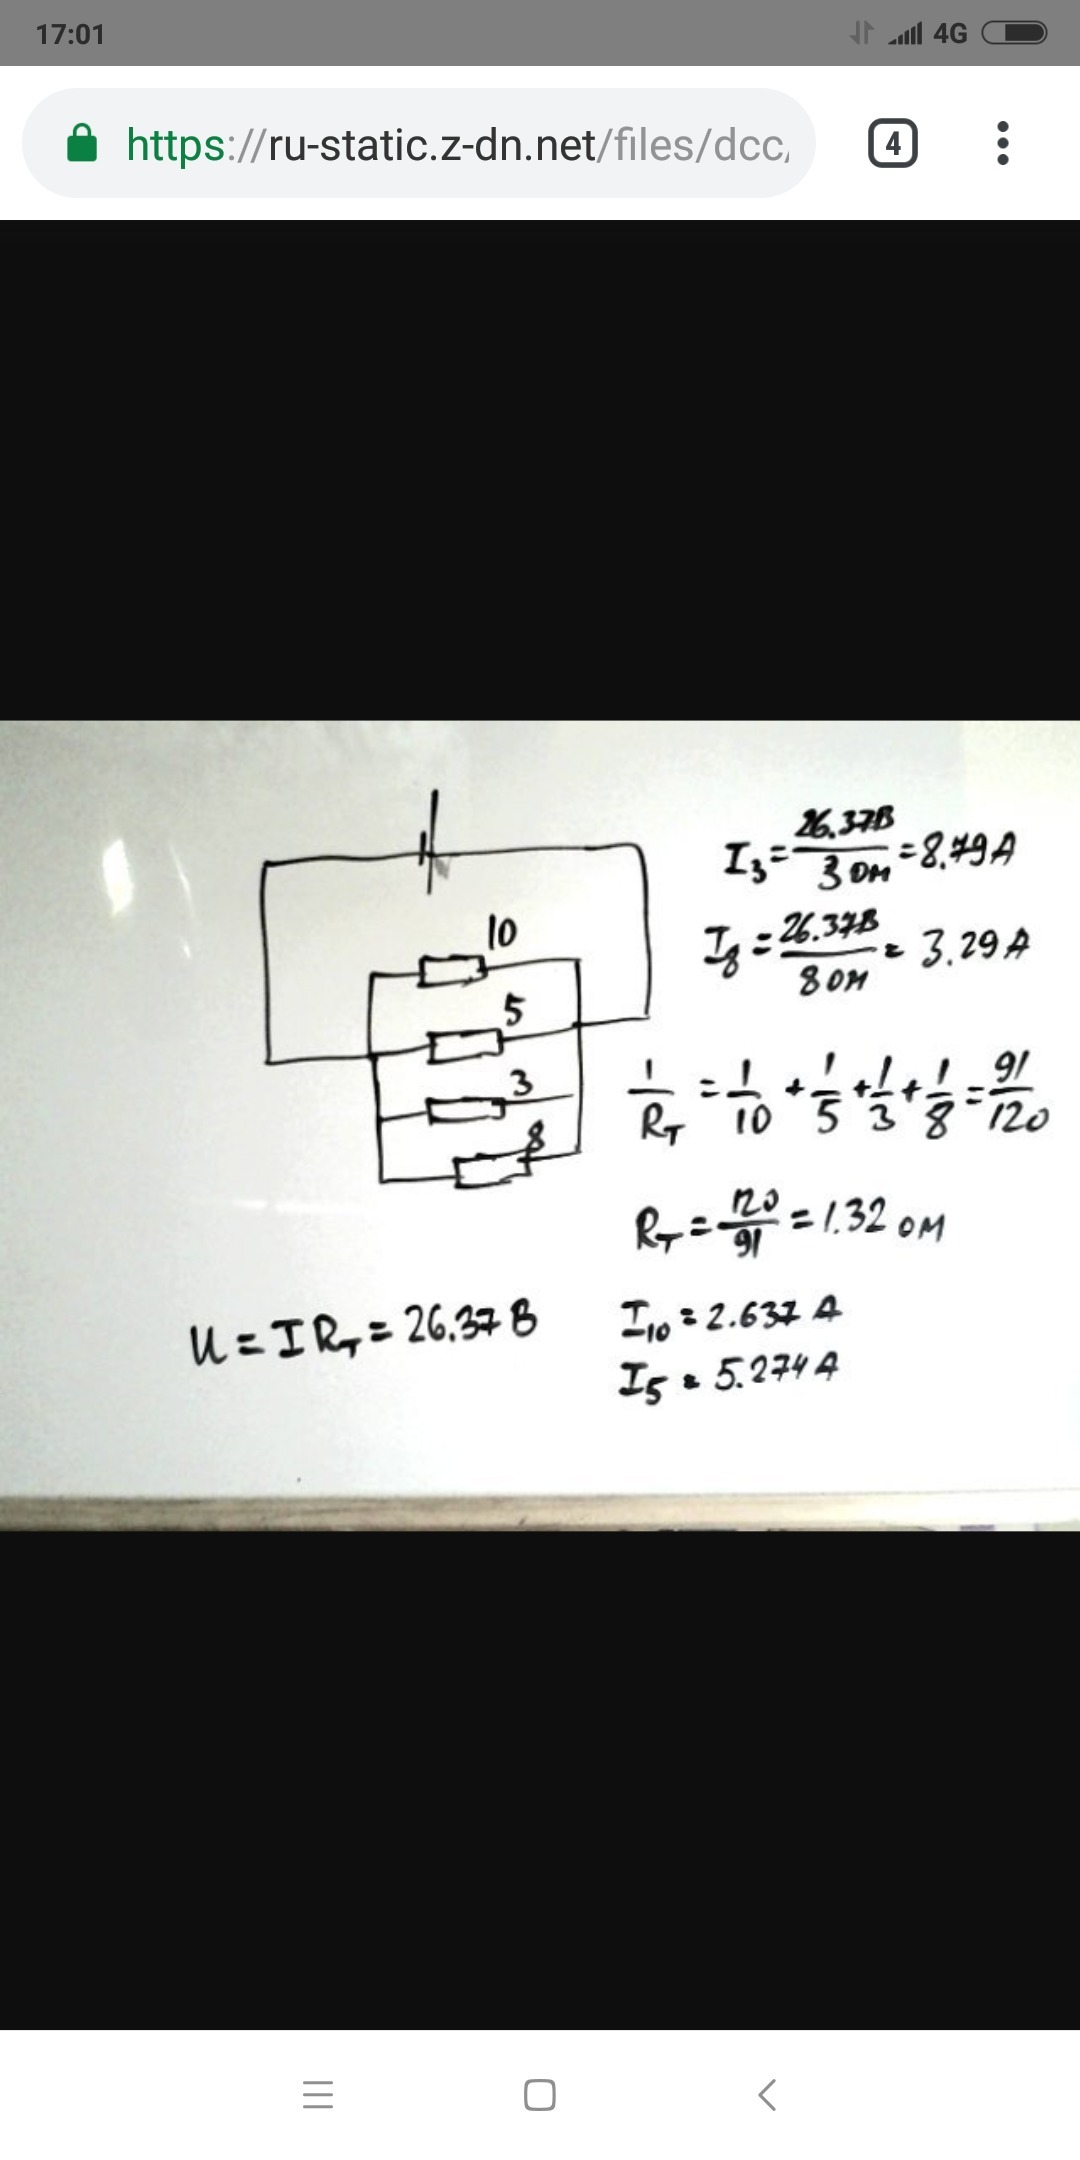 17:01
4G
https://ru-static.z-dn.net/files/dcc/
4
I₃ = 26.37В / 3 ом = 8.79 А
I₈ = 26.37В / 8 ом = 3.29 А
10
5
3
8
1/R_T = 1/10 + 1/5 + 1/3 + 1/8 = 91/120
R_T = 120/91 = 1.32 ом
U = I R_T = 26.37 В
I₁₀ = 2.637 А
I₅ = 5.274 А